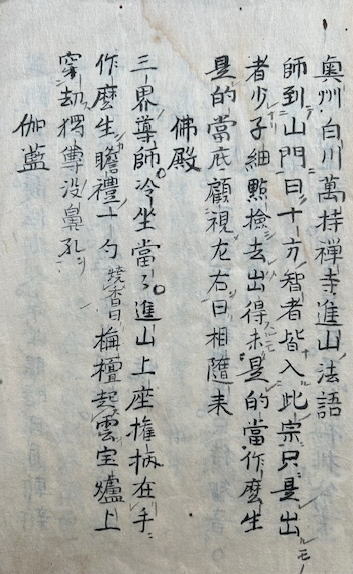 奥州白川萬持禅寺進山法語
師到山門曰十方智者皆入此宗只是出
者少子細點撿去出得未是的當作麽生
是的當底顧視左右曰相隨来
佛殿
三界導師冷坐當了進山上座権柄在手
作麽生瞻禮一勺燒香曰栴檀起雲宝爐上
穿劫獦儜没鼻孔
伽藍